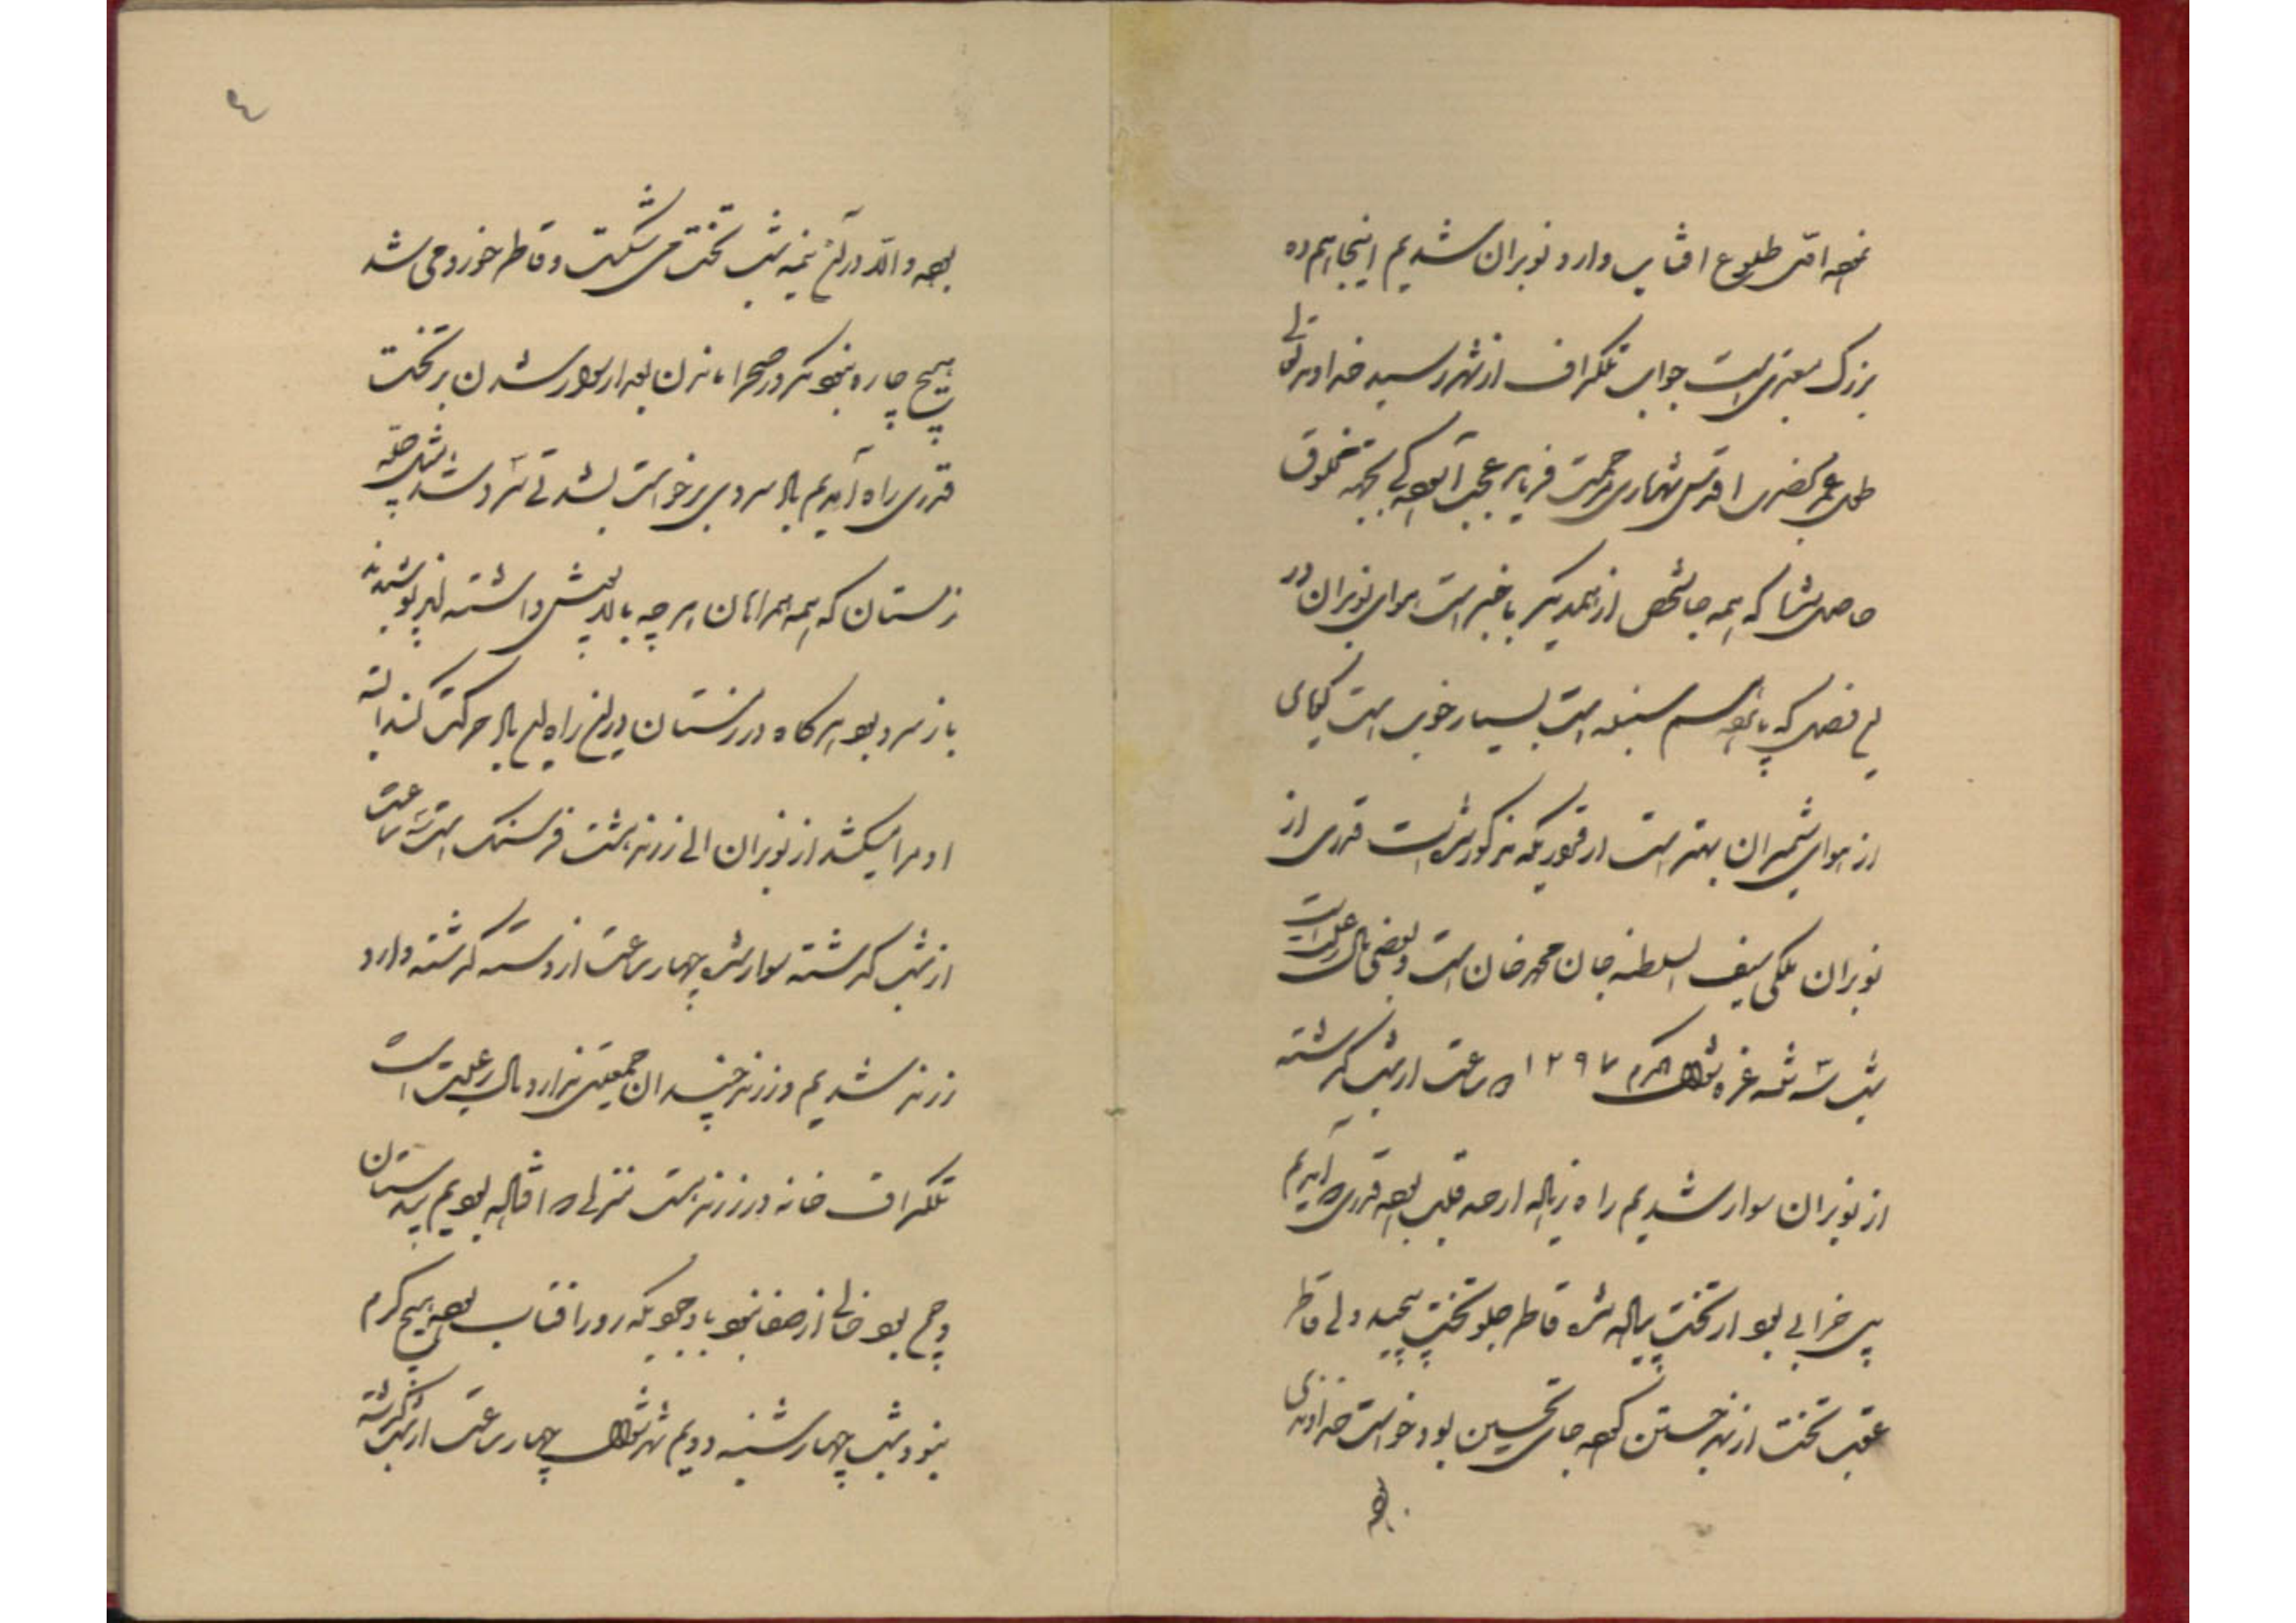 نموده اول طلوع افتاب وارد نوبران شدیم اینجا هم ده
بزرک معتبری است جواب تلکراف از شهر رسید خداوند تعالی
طول عمر بحضرت اقدس شهریاری مرحمت فرماید عجب آسوده کی بجهة مخلوق
حاصل شد که همه جا شخص از همدیکر با خبر است هوای نوبران در
این فصل که پانزدهم سنبله است بسیار خوب است کیمای
از هوای شمیران بهتر است از قراریکه مذکور شد است قدری از
نوبران ملکی سیف السلطنه جان محمد خان است و بعضی مال رعیت است
شب سه شنبه غره شوال المکرم ۱۲۹۷ ۵ ساعت از شب کذشته
از نوبران سوار شدیم راه زیاله از حد قلب بود قدری راه آمدیم
پل خرابی بود از تخت پیاده شده قاطر جلو تخت پیچید ولی قاطر
عقب تخت از بند جستن کرد جای تحسین بود خواست خداوندی
بود
٤
بود والا در آن نیمه شب تخت می شکست و قاطر خورد می شد
هیچ چاره نبود مکر در صحرا ماندن بعد از سوار شدن بر تخت
قدری راه آمدیم باد سردی برخواست بشدتی سرد شد مثل چله
زمستان که همه همراهان هر چه بالاپوش داشتند پوشیدند
باز سرد بود هرکاه در زمستان در این راه این باد حرکت کند البته
ادم را میکشد از نوبران الی زرند هشت فرسنک است سه ساعت
از شب کذشته سوار شده چهار ساعت از دسته کذشته وارد
زرند شدیم در زرند چندان جمعیتی ندارد مال رعیت است
تلکراف خانه در زرند هست منزل ما در قلعه بودیم بیدستان
و چمن بود خالی از صفا نبود با وجودیکه رو در افتاب بود هیچ کرم
نبود شب چهارشنبه دویم شهر شوال چهار ساعت از شب کذشته